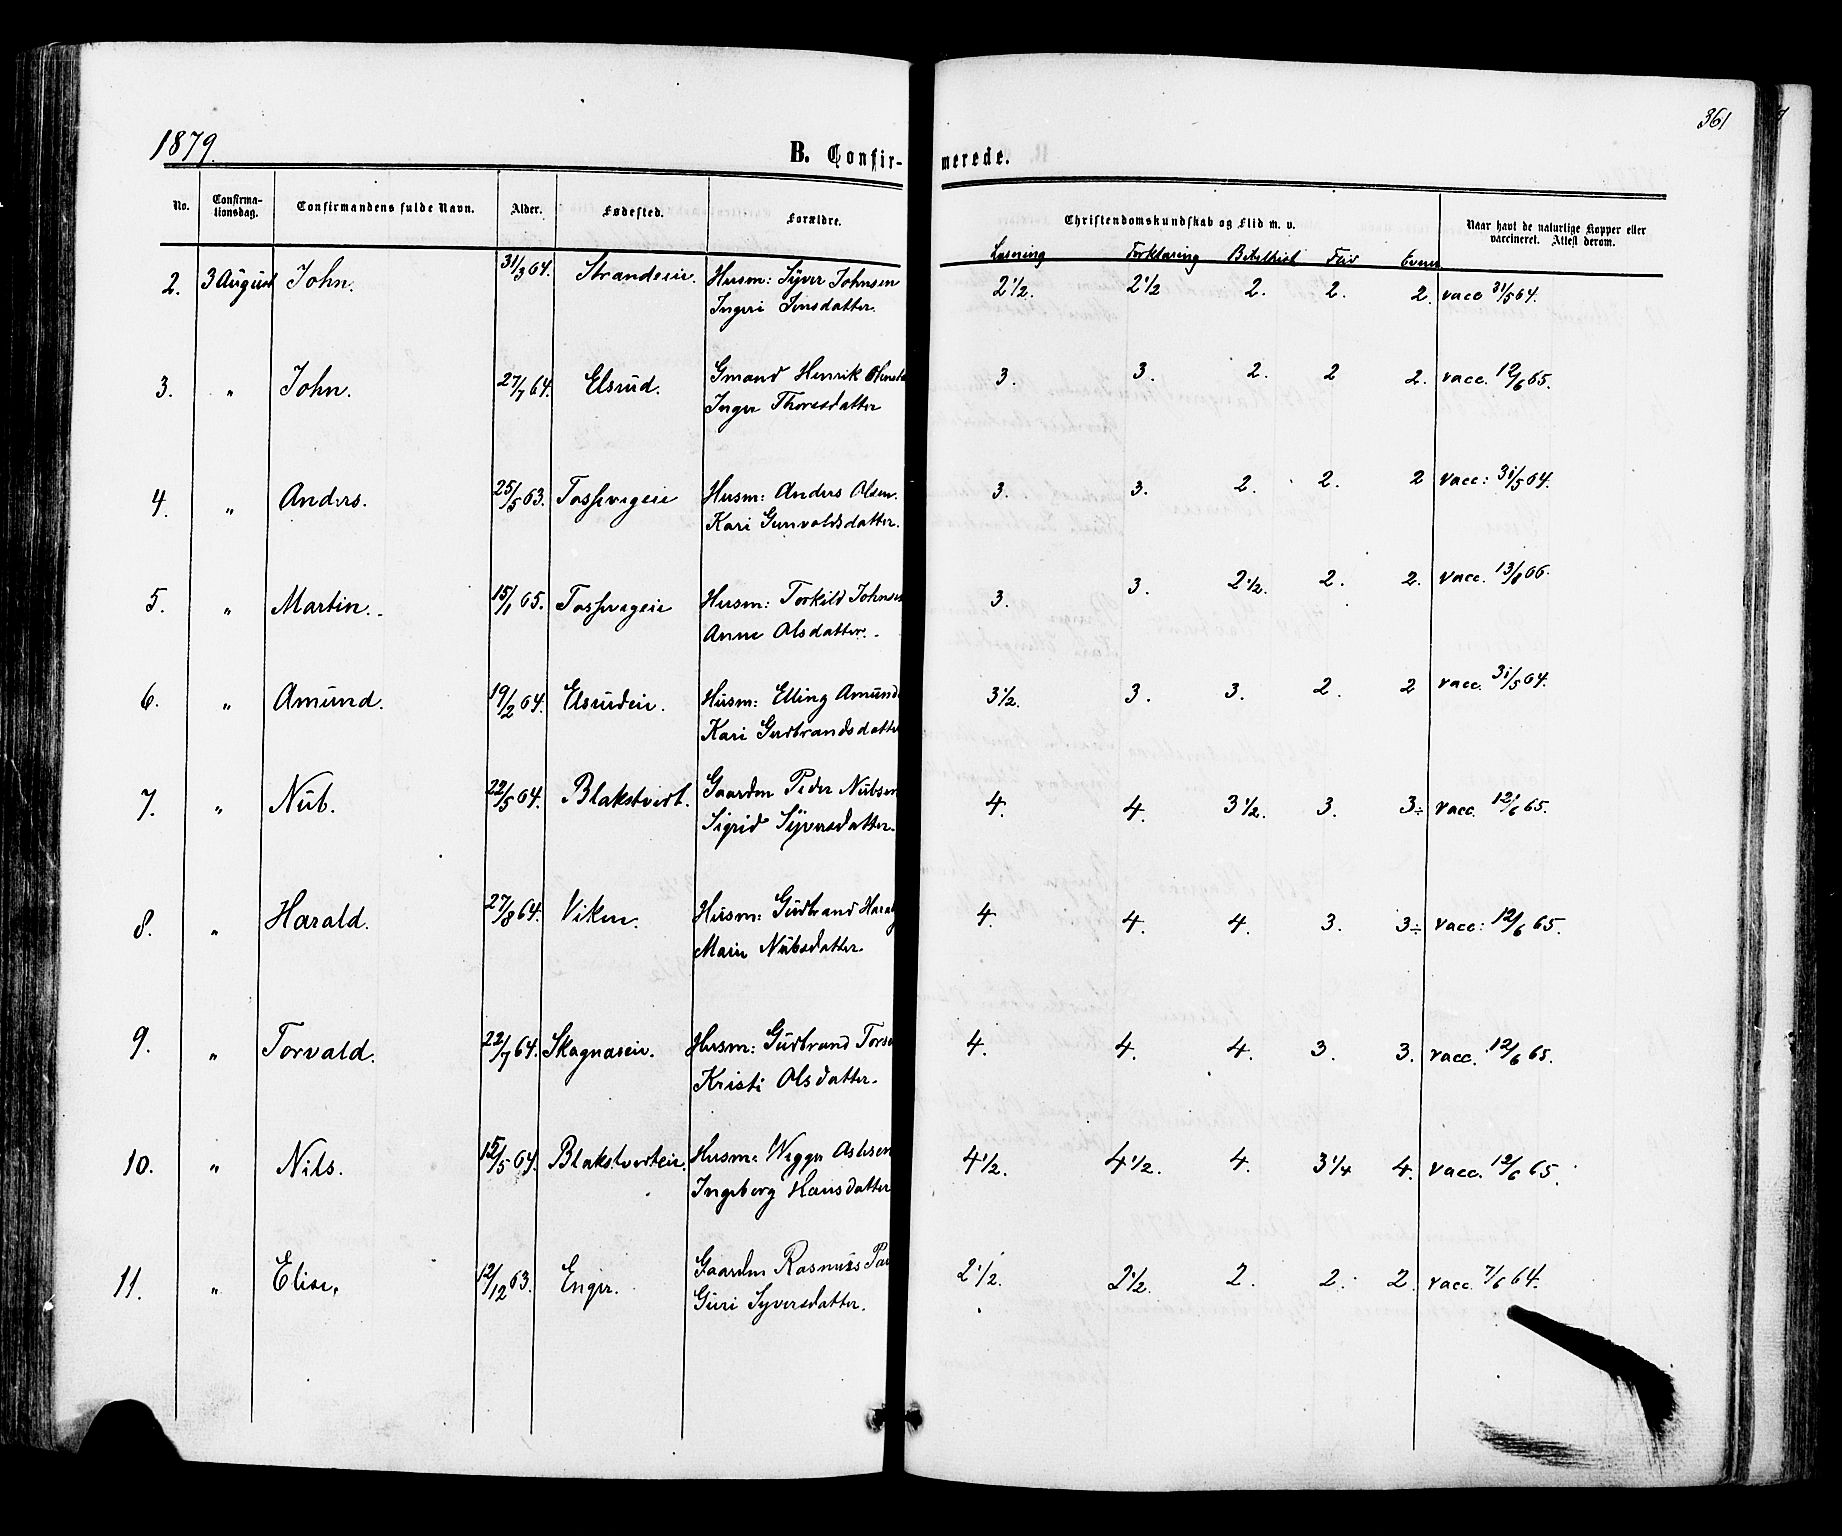 1879.
361
B. Confir- merede.
No. Confirma-tionsdag. Confirmandens fulde Navn. Alder. Fødested. Forældre. Christendomskundskab og Flid m. v. Naar havt de naturlige Kopper eller vaccineret. Attest derom.
Læsning Forklaring Flid Evner
2. 3 August John. 31/3 64. Strandeie. Husm: Syver Johnsen 2 1/2. 2 1/2 2. 2. 2. vacc 31/5 64.
Ingeri Jensdatter.
3. " John. 27/7 64. Elsrud. Gmand Henrik 3. 3. 2. 2 2. vacc. 12/6 65.
Inger Thoresdatter
4. " Anders. 25/5 63. Husm: Anders Olsen. 3. 3. 2. 2. 2 vacc: 31/5 64.
Kari Gunvoldsdatter.
5. " Martin. 15/1 65. Husm: Torkild Johnsen 3. 3. 2 1/2. 2. 2. vacc. 13/8 66.
Anne Olsdatter.
6. " Amund. 19/2 64. Elsrudeie. Husm: Elling Amund 3 1/2. 3. 3. 2. 2 vacc. 31/5 64.
Kari Gudbrandsdatter
7. " Nub. 22/5 64. Blakstvedt. Gaardm Peder Nubsen 4. 4. 3 1/2. 3. 3÷ vacc. 12/6 65.
Sigrid Syversdatter.
8. " Harald. 27/8 64. Viken. Husm: Gudbrand Haral 4. 4. 4. 3. 3÷ vacc: 12/6 65.
Marie Nubsdatter.
9. " Torvald. 22/7 64. Skagnæseie. Husm: Gudbrand Torse 4. 4. 4. 3. 3. vacc. 12/6 65.
Kristi Olsdatter.
10. " Nils. 15/5 64. Blakstvedteie. Husm: 4 1/2. 4 1/2. 4. 3 1/4 4. vacc. 12/6 65.
Ingeborg Hansdatter
11. " Elise. 12/12 63. Enger. Gaardm Rasmus 2 1/2. 2 1/2. 2. 2. 2. vacc. 7/6 64.
Guri Syversdatter.